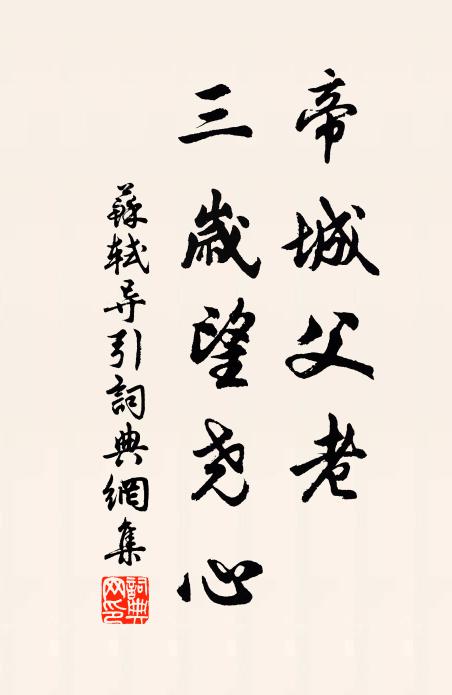 帝城父老
三歲望尧心
蘇軾导引詞典網集
詞典网印